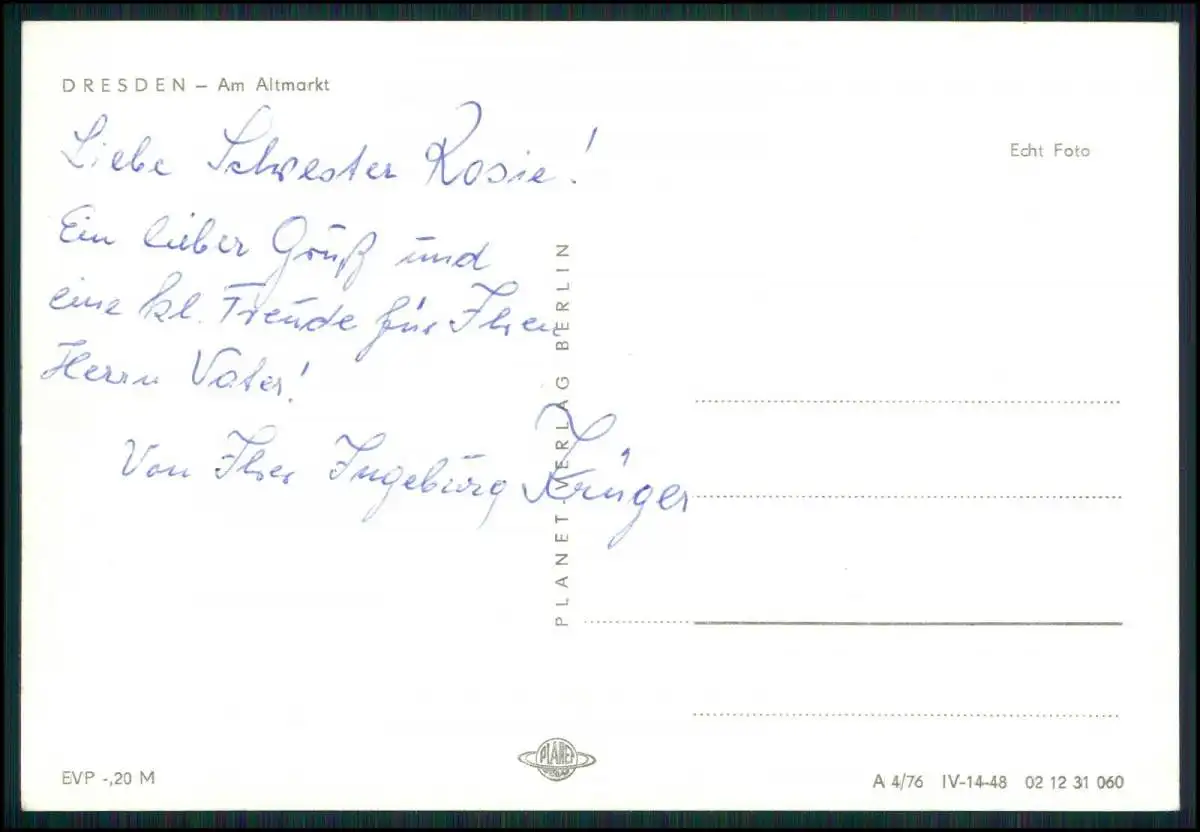 DRESDEN – Am Altmarkt
Echt Foto
Liebe Schwester Rosie!
Ein lieber Gruß und
eine kl. Freude für Ihren
Herrn Vater!
Von Ihrer Ingeburg Krüger
PLANET-VERLAG BERLIN
PLANET
VERLAG
EVP -,20 M
A 4/76 IV-14-48 02 12 31 060